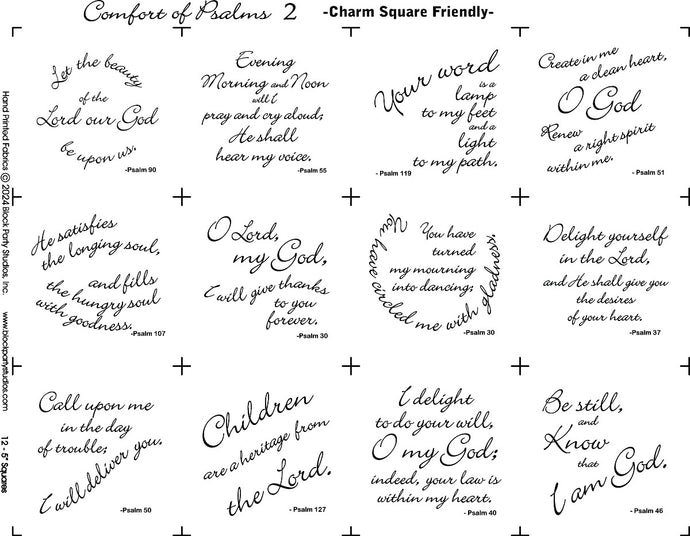 Comfort of Psalms 2 -Charm Square Friendly-
Let the beauty
of the
Lord our God
be upon us.
-Psalm 90
Evening
Morning and Noon
will I
pray and cry aloud;
He shall
hear my voice.
-Psalm 55
Your word
is a
lamp
to my feet
and a
light
to my path.
- Psalm 119
Create in me
a clean heart,
O God
Renew
a right spirit
within me.
- Psalm 51
He satisfies
the longing soul,
and fills
the hungry soul
with goodness.
-Psalm 107
O Lord,
my God,
I will give thanks
to you
forever.
-Psalm 30
You have
turned
my mourning
into dancing;
You have circled me with gladness.
-Psalm 30
Delight yourself
in the Lord,
and He shall give you
the desires
of your heart.
-Psalm 37
Call upon me
in the day
of trouble;
I will deliver you.
-Psalm 50
Children
are a heritage from
the Lord.
-Psalm 127
I delight
to do your will,
O my God;
indeed, your law is
within my heart.
- Psalm 40
Be still,
and
Know
that
I am God.
- Psalm 46
Hand Printed Fabrics © 2024 Block Party Studios, Inc. www.blockpartystudios.com 12 - 5" Squares